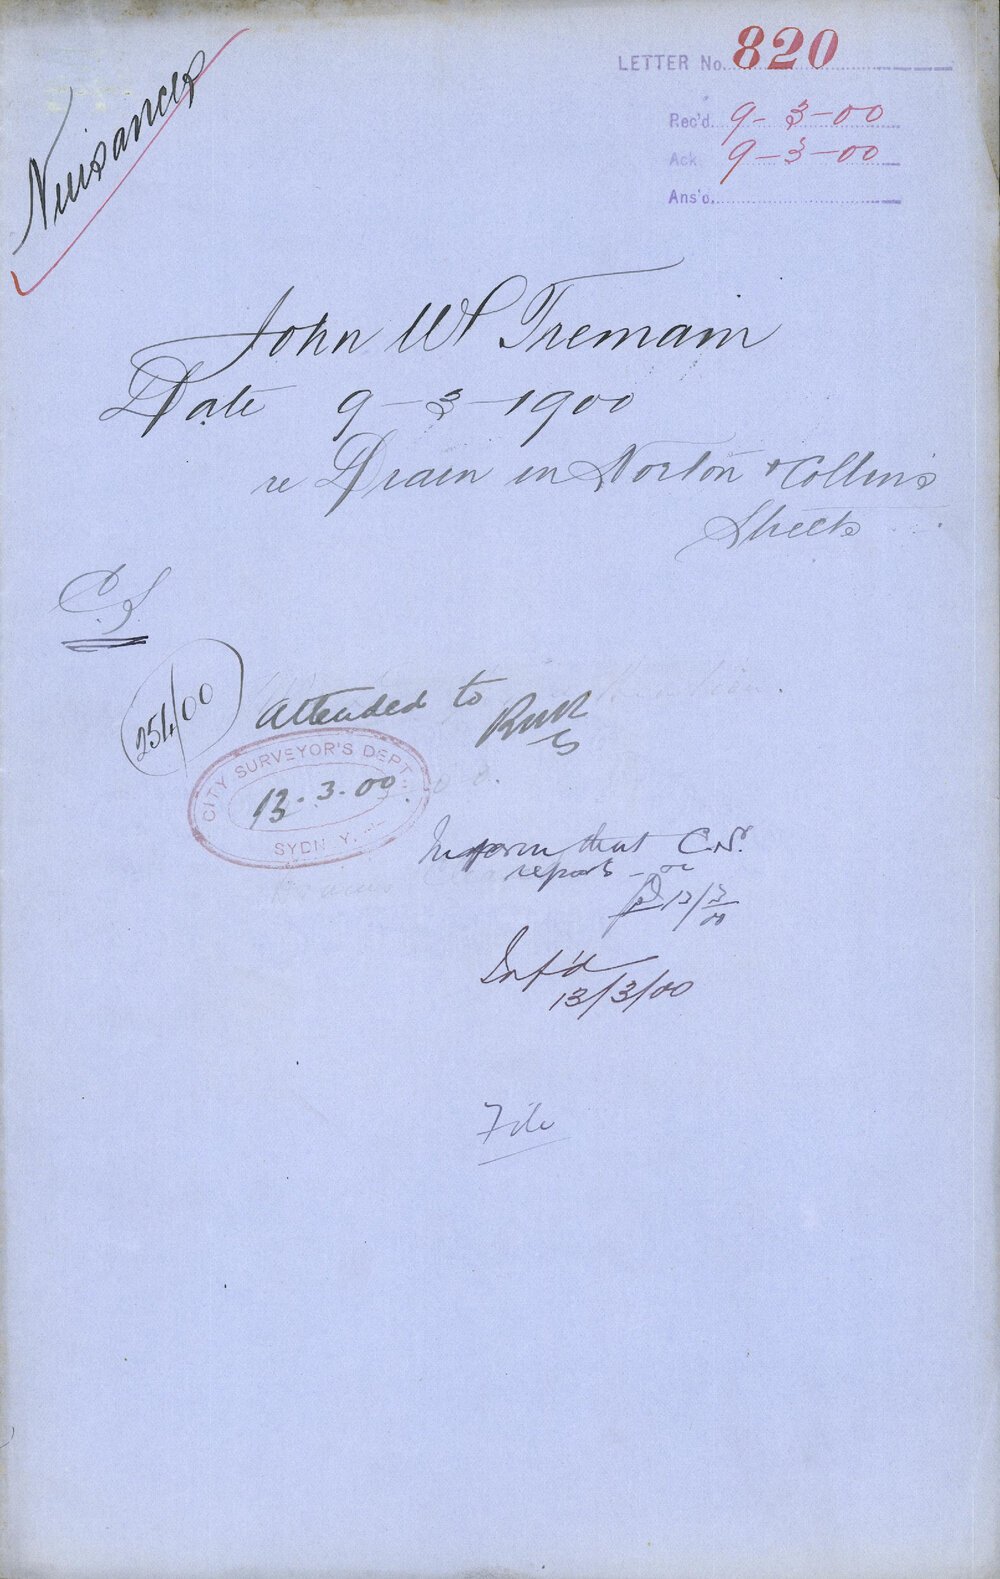 Nuisances
LETTER No. 820
Rec'd. 9-3-00
Ack 9-3-00
Ans'd.
John W Tremain
Date 9-3-1900
re Drain in Norton & Collins
Streets
C.S
254/00
Attended to
CITY SURVEYOR'S DEPT.
13.3.00
SYDNEY.
Inform that C.S.
reports
13/3/00
Inf'd
13/3/00
File